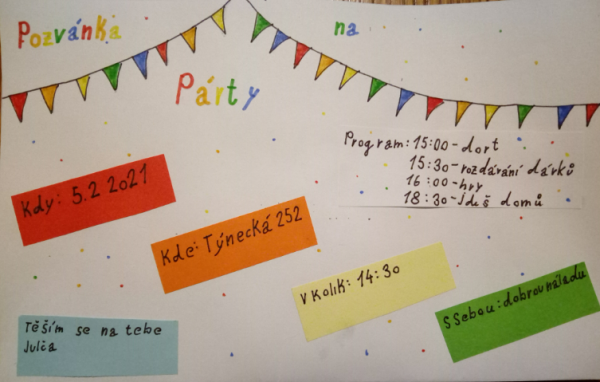 Pozvánka na
Párty
Program: 15:00 - dort
15:30 - rozdárání dárků
16:00 - hry
18:30 - Jdeš domů
Kdy: 5.2 2021
Kde: Týnecká 252
V kolik: 14:30
S Sebou: dobrou náladu
Těším se na tebe
Julča